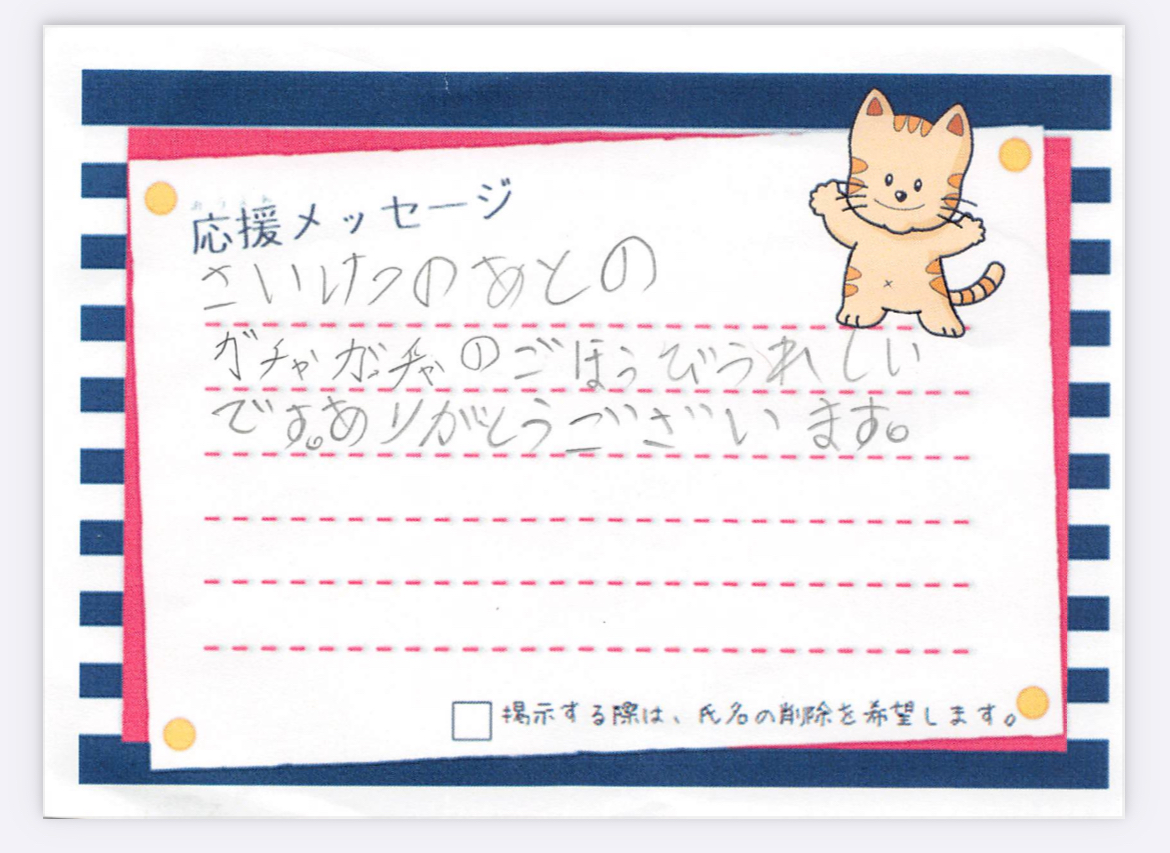 応援メッセージ
さいけつのあとの
ガチャガチャのごほうびうれしい
です。ありがとうございます。
掲示する際は、氏名の削除を希望します。